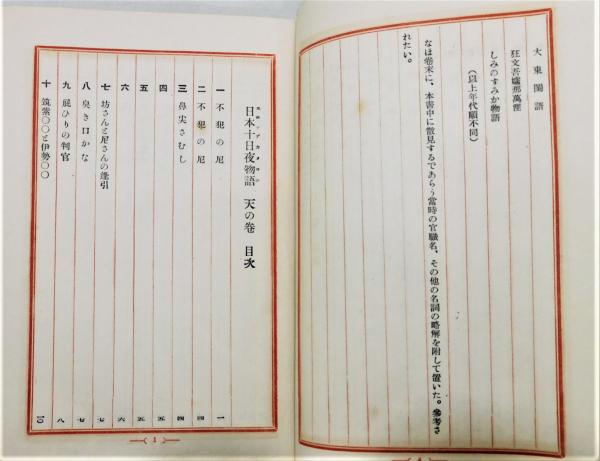 大東閨語
狂文吾嬬那萬俚
しみのすみか物語
(以上年代順不同)
なほ卷末に、本書中に散見するであらう當時の官職名、その他の名詞の略解を附して置いた。參考さ
れたい。
日本十日夜物語 天の卷 目次
一 不犯の尼 一
二 不犯の尼 四
三 鼻尖さむし 四
四 五
五 五
六 六
七 坊さんと尼さんの逢引 七
八 臭き口かな 七
九 屁ひりの判官 八
十 筑紫〇〇と伊勢〇〇 10